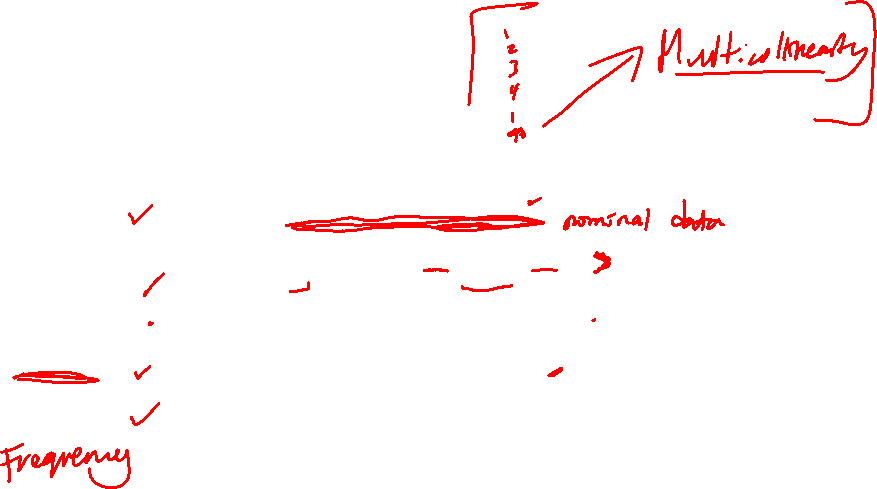 1
2
3
4
Multicollinearity
nominal data
Frequency